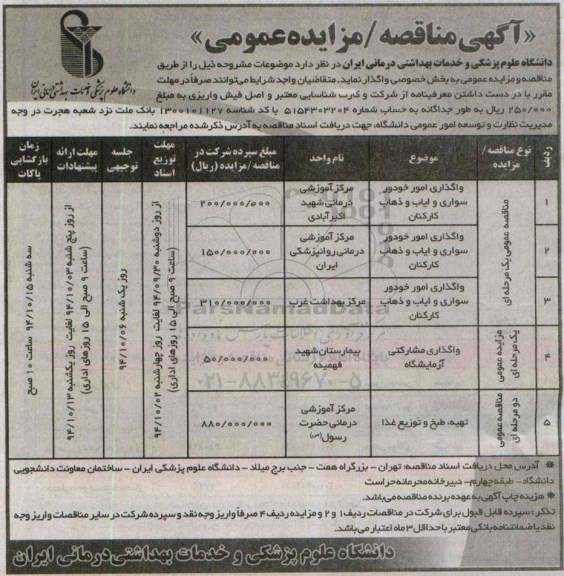 «آگهی مناقصه/مزایده عمومی»
دانشگاه علوم پزشکی و خدمات بهداشتی درمانی ایران
دانشگاه علوم پزشکی و خدمات بهداشتی درمانی ایران در نظر دارد موضوعات مشروحه ذیل را از طریق
مناقصه و مزایده عمومی به بخش خصوصی واگذار نماید. متقاضیان واجد شرایط می‌توانند صرفاً در مهلت
مقرر با در دست داشتن معرفینامه از شرکت و کارت شناسایی معتبر و اصل فیش واریزی به مبلغ
۲۵۰/۰۰۰ ریال به طور جداگانه به حساب شماره ۵۱۵۴۳۰۳۲۰۴ با کد شناسه ۱۳۰۰۱۰۱۱۲۷ بانک ملت نزد شعبه هجرت در وجه
مدیریت نظارت و توسعه امور عمومی دانشگاه، جهت دریافت اسناد مناقصه به آدرس ذکر شده مراجعه نمایند.
ردیف | نوع مناقصه/مزایده | موضوع | نام واحد | مبلغ سپرده شرکت در مناقصه/مزایده (ریال) | مهلت توزیع اسناد | مهلت ارائه پیشنهادات | جلسه توجیهی | زمان بازگشایی پاکات
۱ | مناقصه عمومی یک مرحله ای | واگذاری امور خودرو سواری و ایاب و ذهاب کارکنان | مرکز آموزشی درمانی شهید اکبرآبادی | ۲۰۰/۰۰۰/۰۰۰
۲ | واگذاری امور خودرو سواری و ایاب و ذهاب کارکنان | مرکز آموزشی درمانی روانپزشکی ایران | ۱۵۰/۰۰۰/۰۰۰
۳ | واگذاری امور خودرو سواری و ایاب و ذهاب کارکنان | مرکز بهداشت غرب | ۳۱۰/۰۰۰/۰۰۰
۴ | مزایده عمومی یک مرحله ای | واگذاری مشارکتی آزمایشگاه | بیمارستان شهید فهمیده | ۵۰/۰۰۰/۰۰۰
۵ | مناقصه عمومی دو مرحله ای | تهیه، طبخ و توزیع غذا | مرکز آموزشی درمانی حضرت رسول(ص) | ۸۸۰/۰۰۰/۰۰۰
از روز دوشنبه ۹۴/۰۹/۳۰ لغایت روز چهارشنبه ۹۴/۱۰/۰۲ (ساعت ۹ صبح الی ۱۵ روزهای اداری)
روز یک شنبه ۹۴/۱۰/۰۶
از روز پنج شنبه ۹۴/۱۰/۰۳ لغایت روز یکشنبه ۹۴/۱۰/۱۳ (ساعت ۹ صبح الی ۱۵ روزهای اداری)
سه شنبه ۹۴/۱۰/۱۵ ساعت ۱۰ صبح
ParsNamadData
۰۲۱-۸۸۳۴۹۶۷۰-۵
* آدرس محل دریافت اسناد مناقصه: تهران - بزرگراه همت - جنب برج میلاد - دانشگاه علوم پزشکی ایران - ساختمان معاونت دانشجویی
دانشگاه - طبقه چهارم - دبیرخانه محرمانه حراست
* هزینه چاپ آگهی به عهده برنده مناقصه می‌باشد.
تذکر: سپرده قابل قبول برای شرکت در مناقصات ردیف ۱ و ۲ و مزایده ردیف ۴ صرفاً واریز وجه نقد و سپرده شرکت در سایر مناقصات واریز وجه
نقد یا ضمانتنامه بانکی معتبر با حداقل ۳ ماه اعتبار می‌باشد.
دانشگاه علوم پزشکی و خدمات بهداشتی درمانی ایران